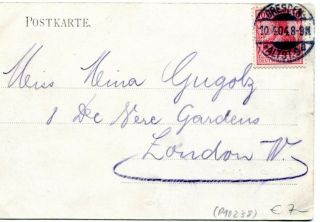 POSTKARTE.
DRESDEN
10.4.04.8-9V.
ALTST.
Miss Mina Gugolz
8 De Vere Gardens
London W.
(PM0238) €7